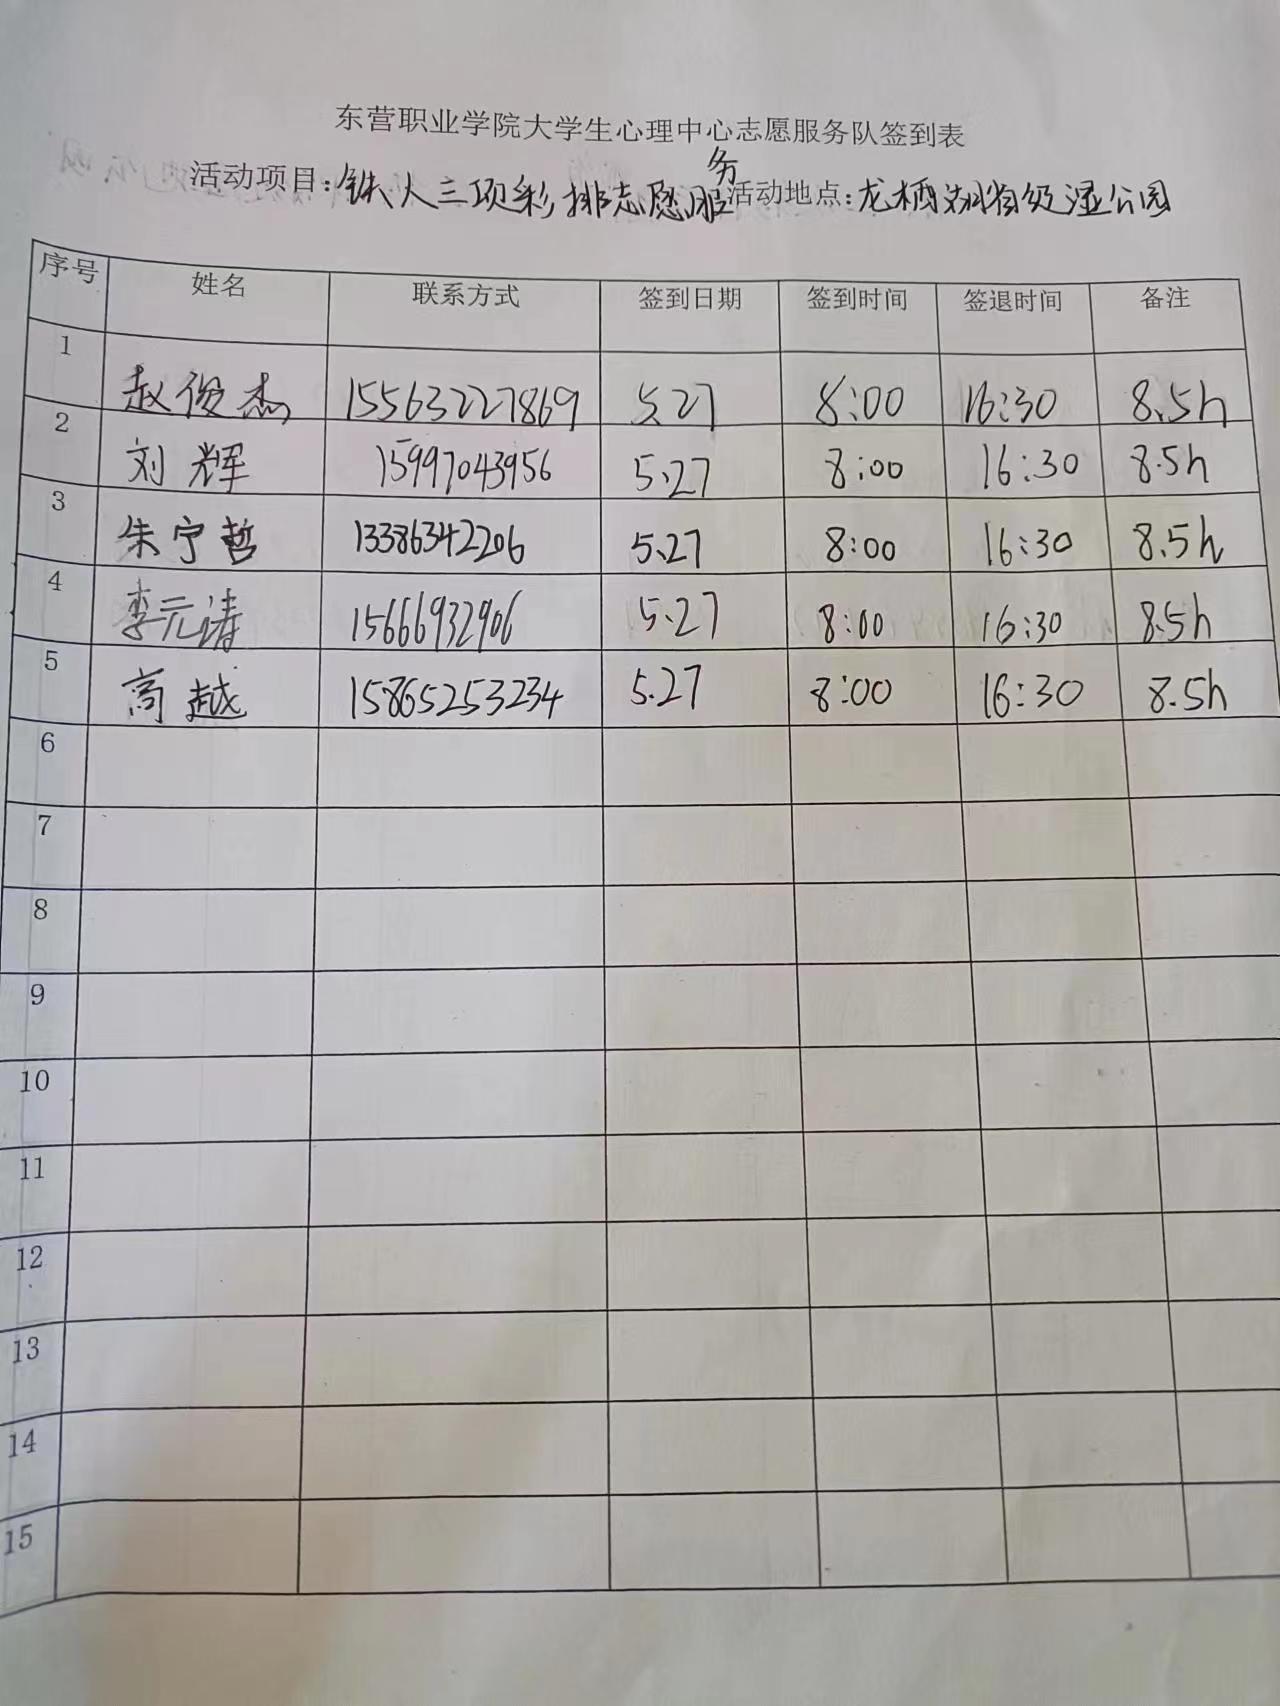 东营职业学院大学生心理中心志愿服务队签到表
活动项目:铁人三项彩排志愿服务 活动地点:龙栖湖省级湿公园
序号 姓名 联系方式 签到日期 签到时间 签退时间 备注
1 赵俊杰 15563227869 5.27 8:00 16:30 8.5h
2 刘辉 15997043956 5.27 8:00 16:30 8.5h
3 朱宁哲 13386342206 5.27 8:00 16:30 8.5h
4 李元涛 15666932906 5.27 8:00 16:30 8.5h
5 高越 15865253234 5.27 8:00 16:30 8.5h
6
7
8
9
10
11
12
13
14
15